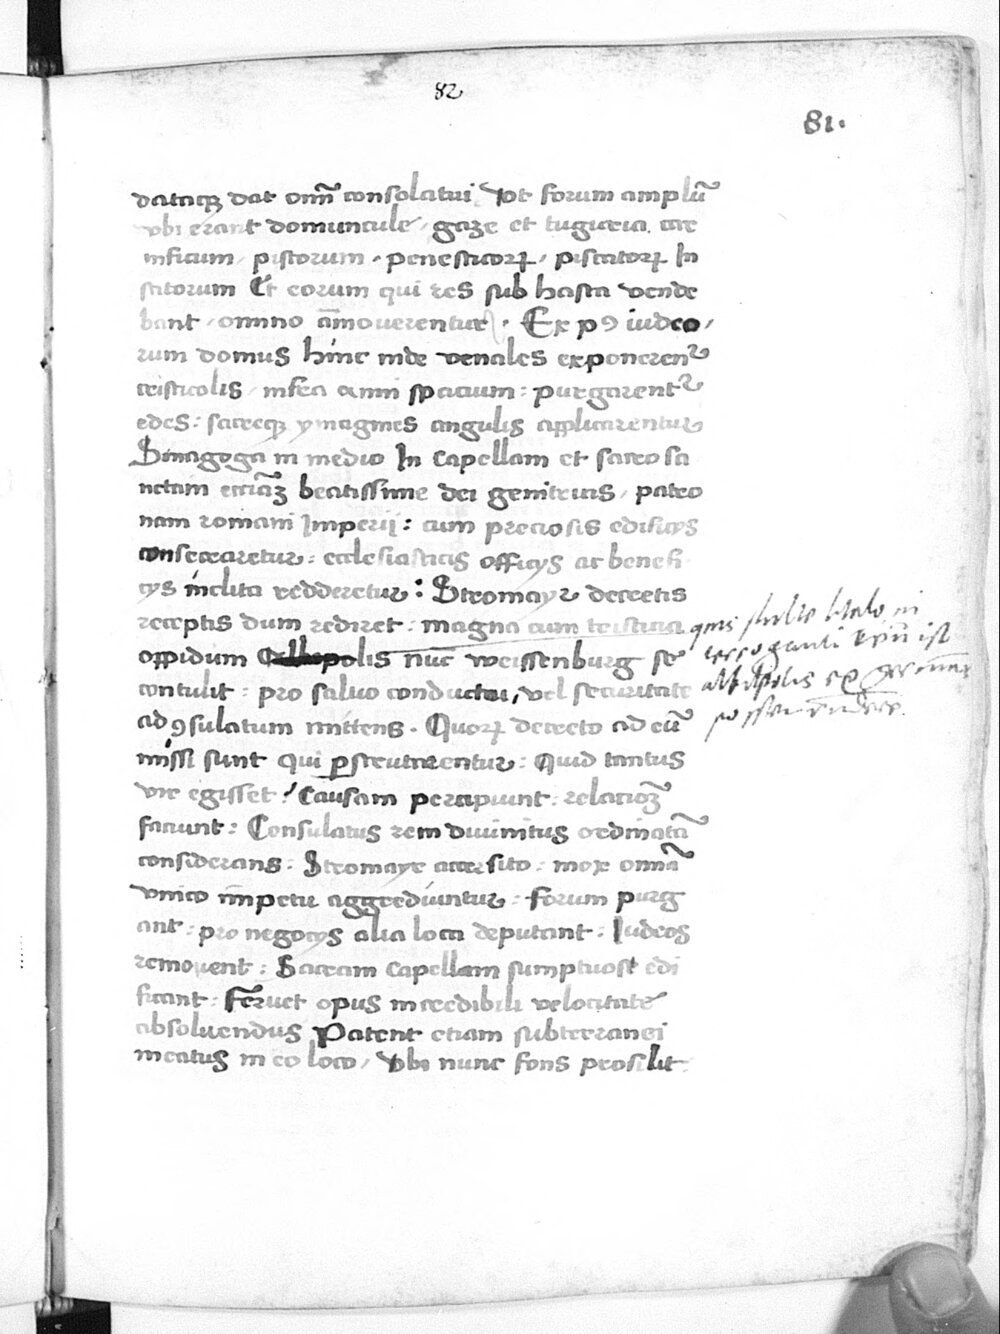 82
81.
dataqꝫ dat om̅ı consolatui. Vot forum amplu̅
vbi erant domuncule, gaze et tuguria. car
nificum, pistorum, penesticoꝝ, piscatoꝝ In
stitorum Et eorum qui res sub hasta vende
bant, omnino a̅moverentur. Ex pꝯ iudeo,
rum domus hinc inde venales exponerent᷑
cristicolis, infra anni spacium: purgarent᷑
edes: sacreqꝫ ymagines angulis applicarentur
Sinagoga in medio In capellam et sacro sa
nctam beatissime dei genitricis, patro
nam romani Imperij: cum preciosis edificijs
consecraretur: ecclesiasticis officijs ac benefi
cijs inclita redderetur: Stromayr decretis
receptis dum rediret: magna cum tristicia
oppidum nu̅c weissenburg se
contulit: pro salvo conductu, vel securitate
ad ꝯsulatum mittens. Quoꝝ decreto ad eu̅
missi sunt qui ꝑscrutarentur: Quid tantus
vir egisset? Causam percipiunt: relacioe̅ꝫ
faciunt: Consulatus rem divinitus ordinata̅
considerans: Stromayr accersito: mox omnia̅
vnico impetu aggrediuntur: forum purg
ant: pro negocijs alia loca deputant: Iudeos
removent: Sacram capellam sumptuose edi
ficant: fervet opus incredibili velocitate
absolvendus Patent etiam subterranei
meatus in eo loco, Vbi nunc fons prosilit